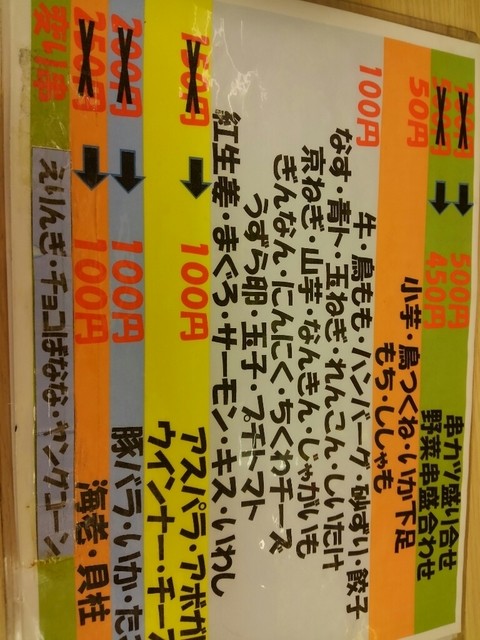 串カツ盛り合せ 500円
野菜串盛合わせ 450円
50円
小芋・鳥つくね・いか下足
もち・ししゃも
100円
牛・鳥もも・ハンバーグ・砂ずり・餃子
なす・青ト・玉ねぎ・れんこん・しいたけ
京ねぎ・山芋・なんきん・じゃがいも
ぎんなん・にんにく・ちくわチーズ
うずら卵・玉子・プチトマト
紅生姜・まぐろ・サーモン・キス・いわし
150円 100円
アスパラ・アボガ
ウインナー・チー
200円 100円
豚バラ・いか・たこ
250円 100円
海老・貝柱
変り串
えりんぎ・チョコばなな・ヤングコーン